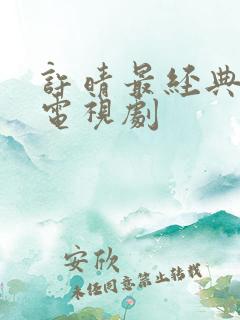 許晴最經典
電視劇
安欣
未經同意禁止轉載